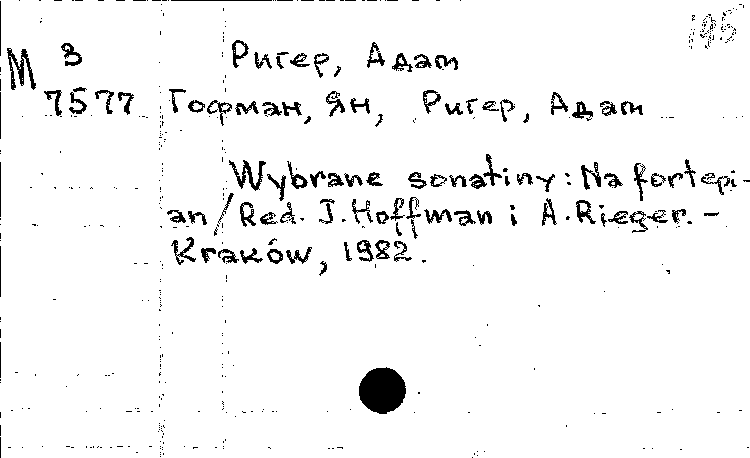 195
М З Ригер, Адам
7577 Гофман, Ян, Ригер, Адам
Wybrane sonatiny: Na fortepi-
an / Red. J. Hoffman i A. Rieger. –
Kraków, 1982.